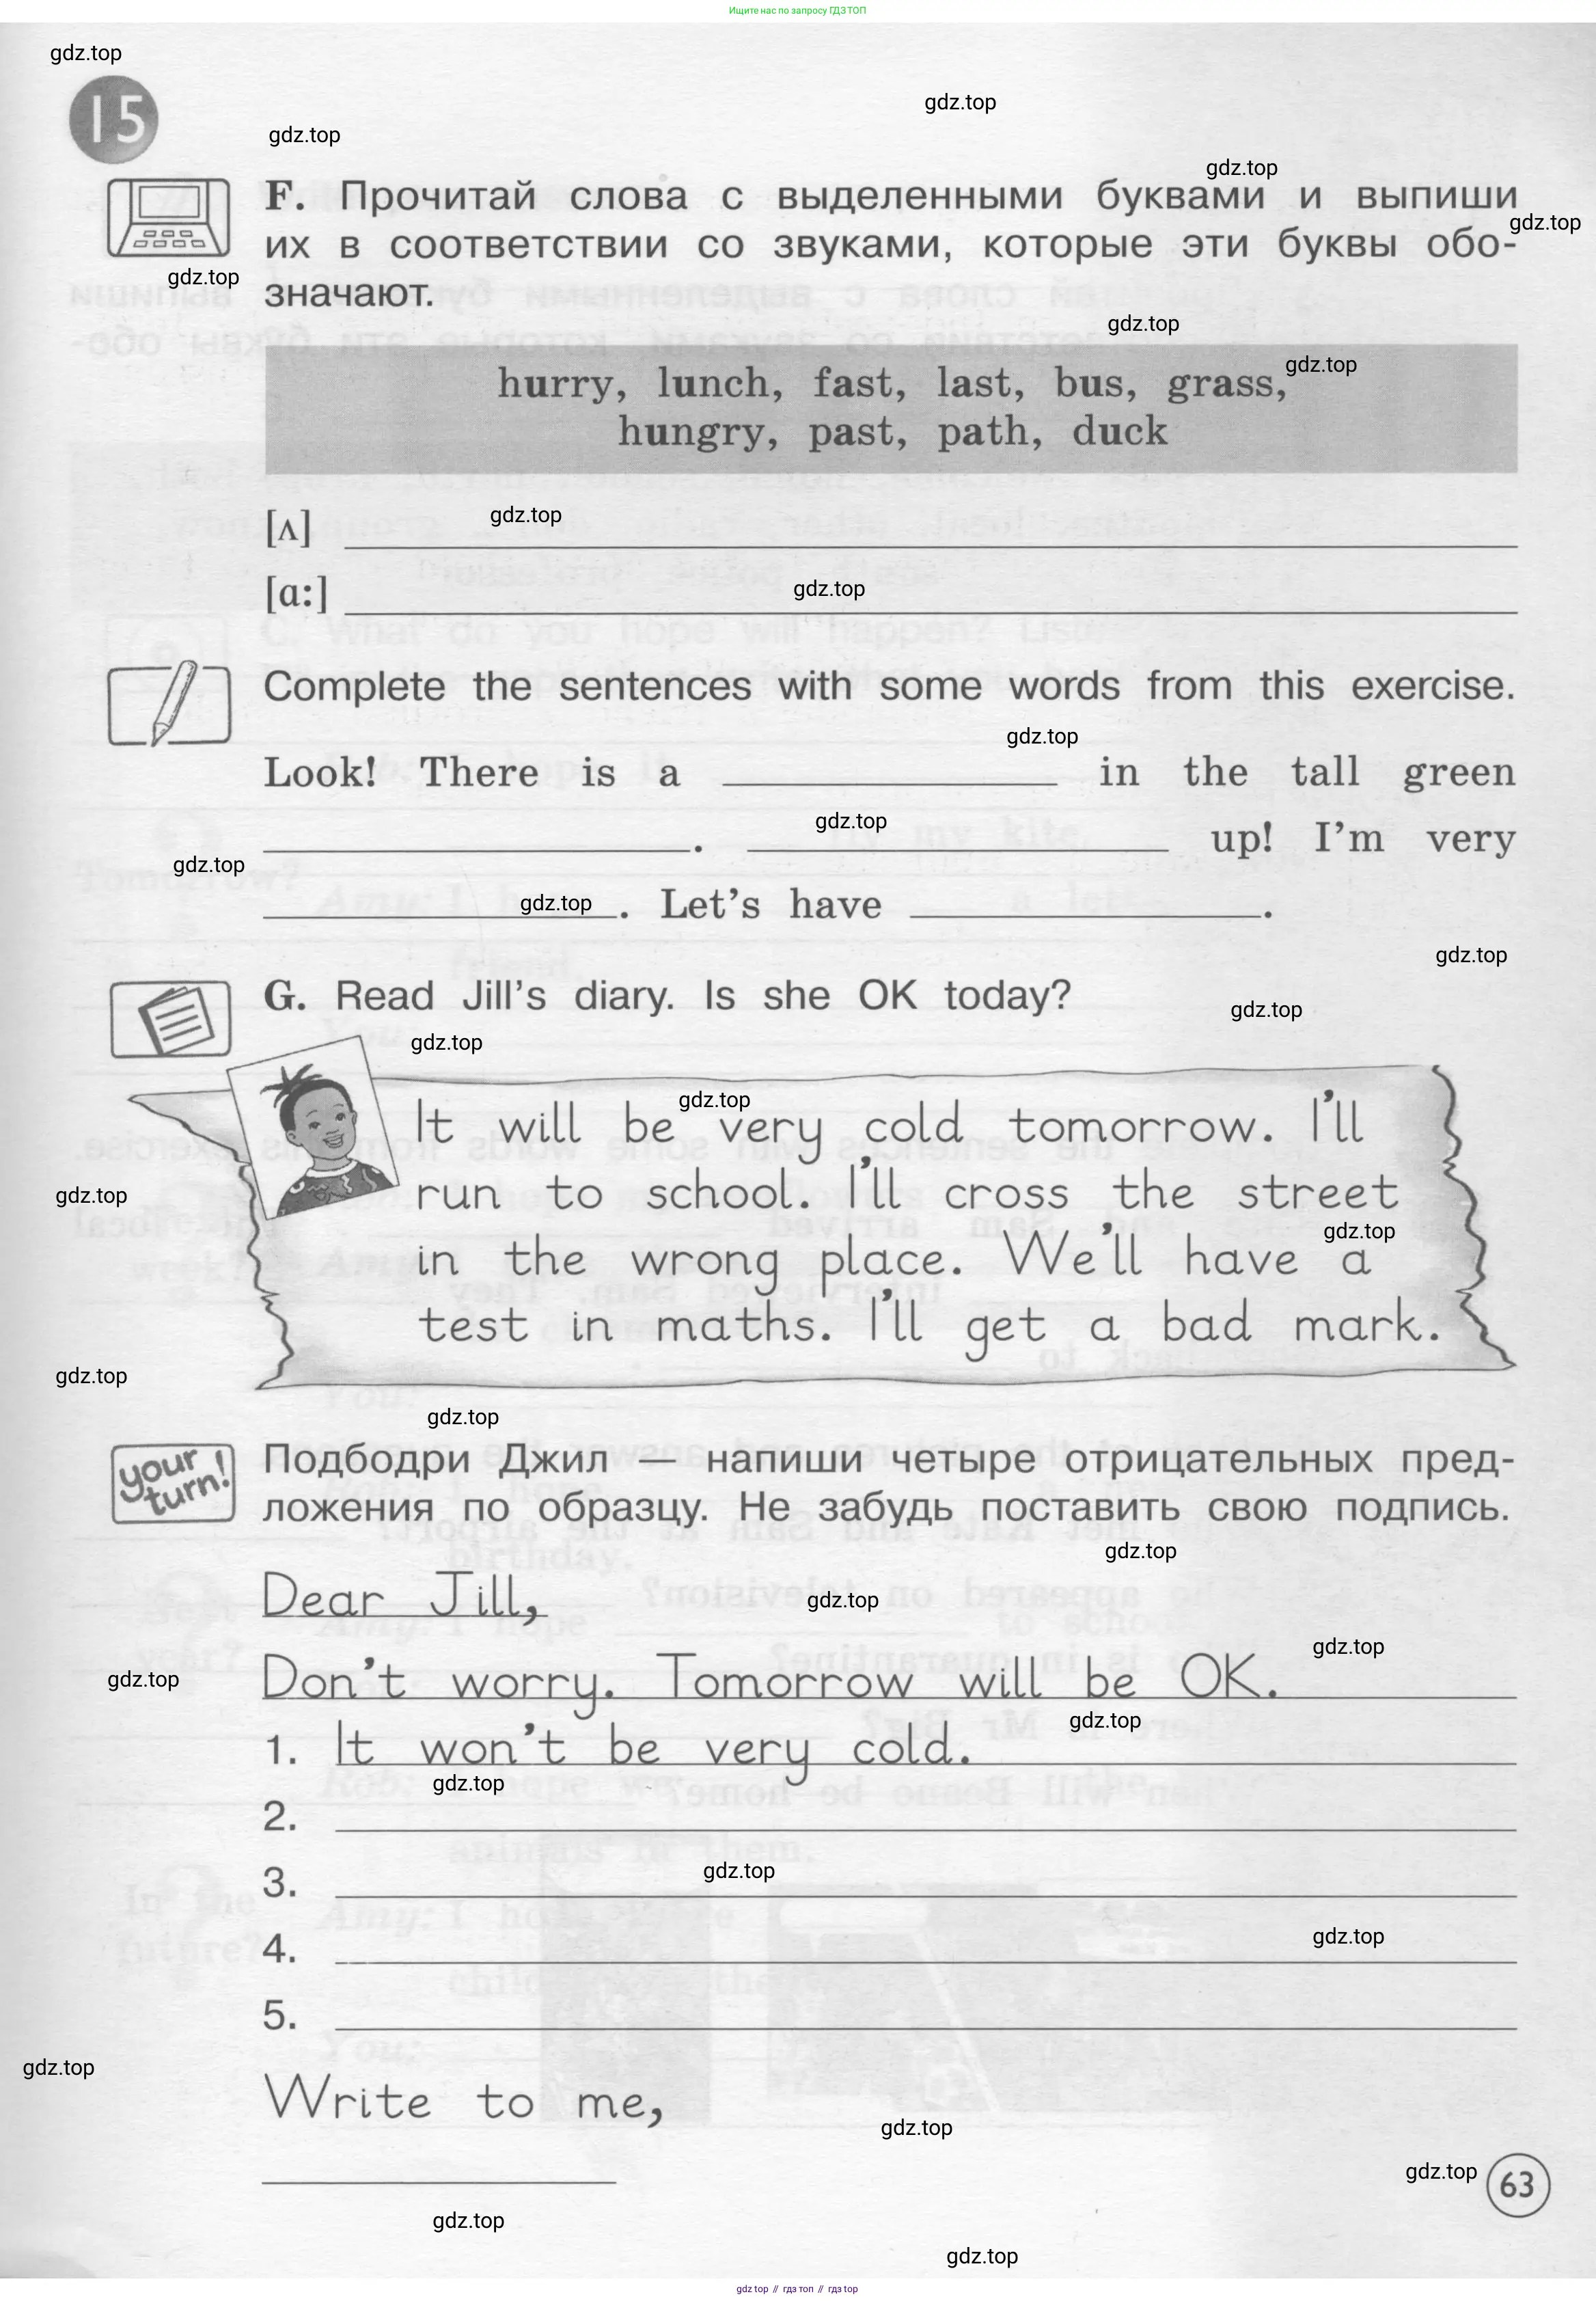 Ищите нас по запросу ГДЗ ТОП
gdz.top
15
gdz.top
gdz.top
gdz.top
F. Прочитай слова с выделенными буквами и выпиши
gdz.top
их в соответствии со звуками, которые эти буквы обо-
gdz.top
значают.
gdz.top
gdz.top
hurry, lunch, fast, last, bus, grass,
hungry, past, path, duck
[ʌ] gdz.top
[ɑ:] gdz.top
Complete the sentences with some words from this exercise.
gdz.top
Look! There is a ____ in the tall green
gdz.top
____. ____ up! I'm very
gdz.top
____. Let's have ____.
gdz.top
gdz.top
G. Read Jill's diary. Is she OK today?
gdz.top
gdz.top
gdz.top
It will be very cold tomorrow. I'll
run to school. I'll cross the street
gdz.top
gdz.top
in the wrong place. We'll have a
test in maths. I'll get a bad mark.
gdz.top
gdz.top
your turn!
Подбодри Джил — напиши четыре отрицательных пред-
ложения по образцу. Не забудь поставить свою подпись.
gdz.top
Dear Jill,
gdz.top
gdz.top
Don't worry. Tomorrow will be OK.
gdz.top
gdz.top
1. It won't be very cold.
gdz.top
2.
3.
gdz.top
4.
gdz.top
5.
gdz.top
Write to me,
gdz.top
gdz.top
63
gdz.top
gdz.top
gdz top // гдз топ // гдз top